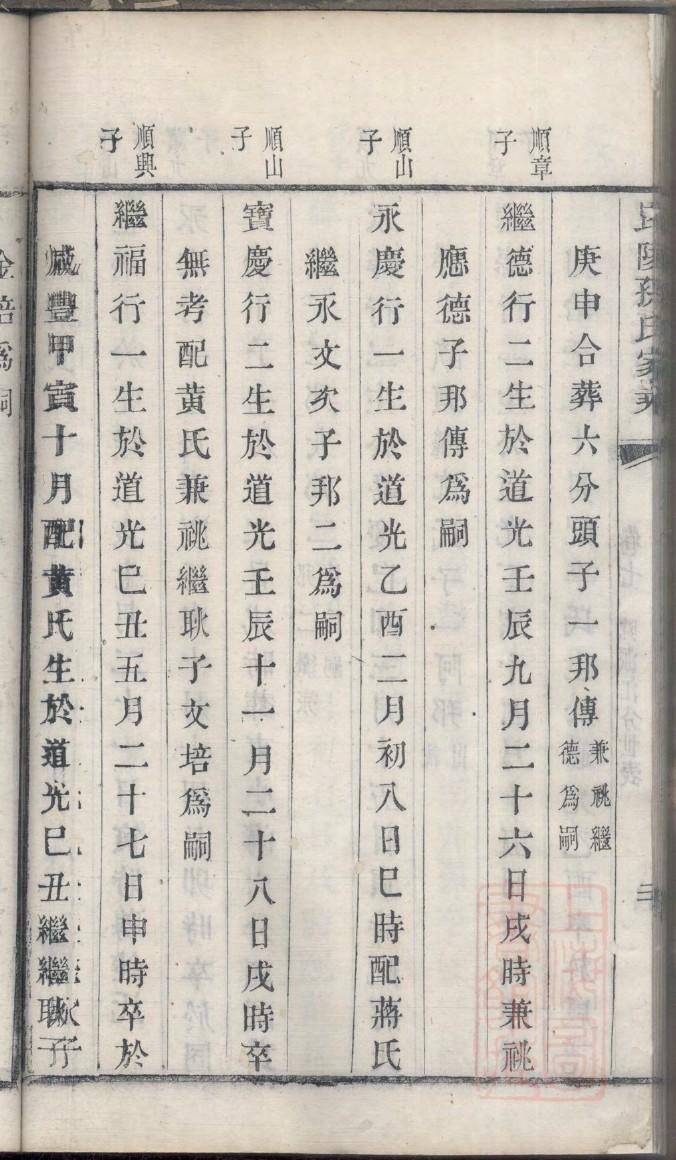 順章子
順山子
順山子
順興子
庚申合葬六分頭子一邦傳兼祧繼德爲嗣
繼德行二生於道光壬辰九月二十六日戌時兼祧
應德子邦傳爲嗣
永慶行一生於道光乙酉二月初八日巳時配蔣氏
繼永文次子邦二爲嗣
寶慶行二生於道光壬辰十一月二十八日戌時卒
無考配黃氏兼祧繼耿子文培爲嗣
繼福行一生於道光巳丑五月二十七日申時卒於
咸豐甲寅十月配黃氏生於道光巳丑繼繼耿子
金培爲嗣